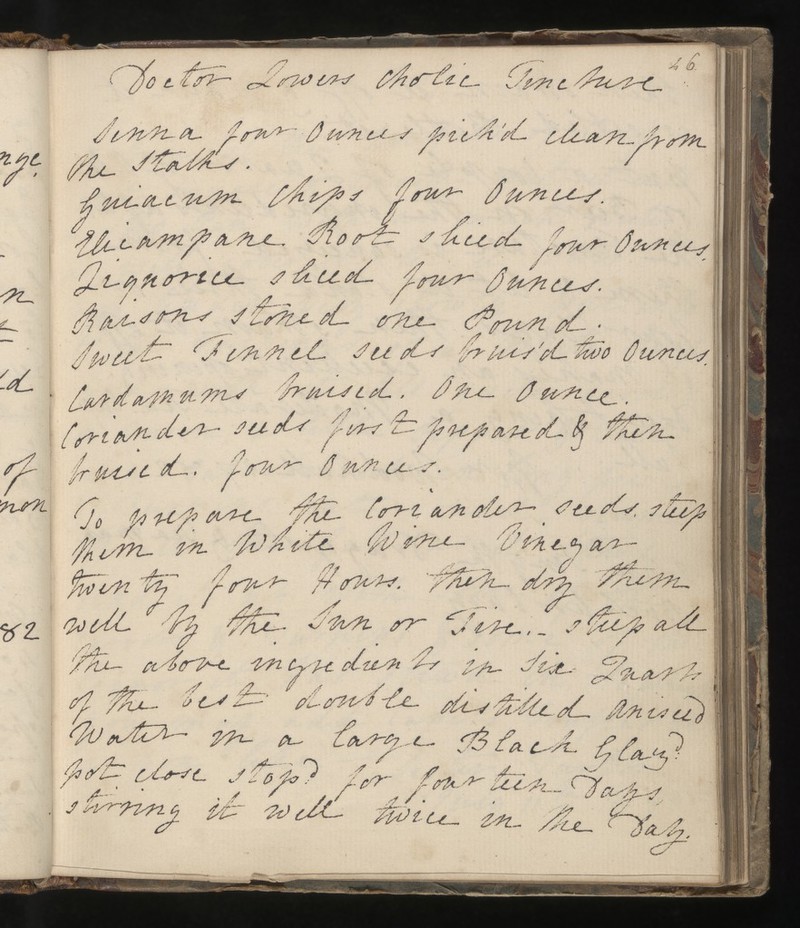 46
Doctor Lowers Cholic Tincture
Senna four Ounces pick'd clean from
the Stalks.
Guiacum Chips four Ounces.
Elicampane Root sliced four Ounces.
Liquorice sliced four Ounces.
Raisons stoned one Pound.
Sweet Fennel seeds bruis'd two Ounces.
Cardamums bruised. One Ounce.
Coriander seeds first prepared & then
bruised. four Ounces.
To prepare the Coriander seeds. steep
them in White Wine Vinegar
twenty four Hours. then dry them
well by the Sun or Fire.- steep all
the above ingredients in Six Quarts
of the best double distilled Aniseed
Water in a large Black Glaz'd
pot close stop'd for fourteen Days,
stirring it well twice in the Day.
nge
n
ld
of
mon
82